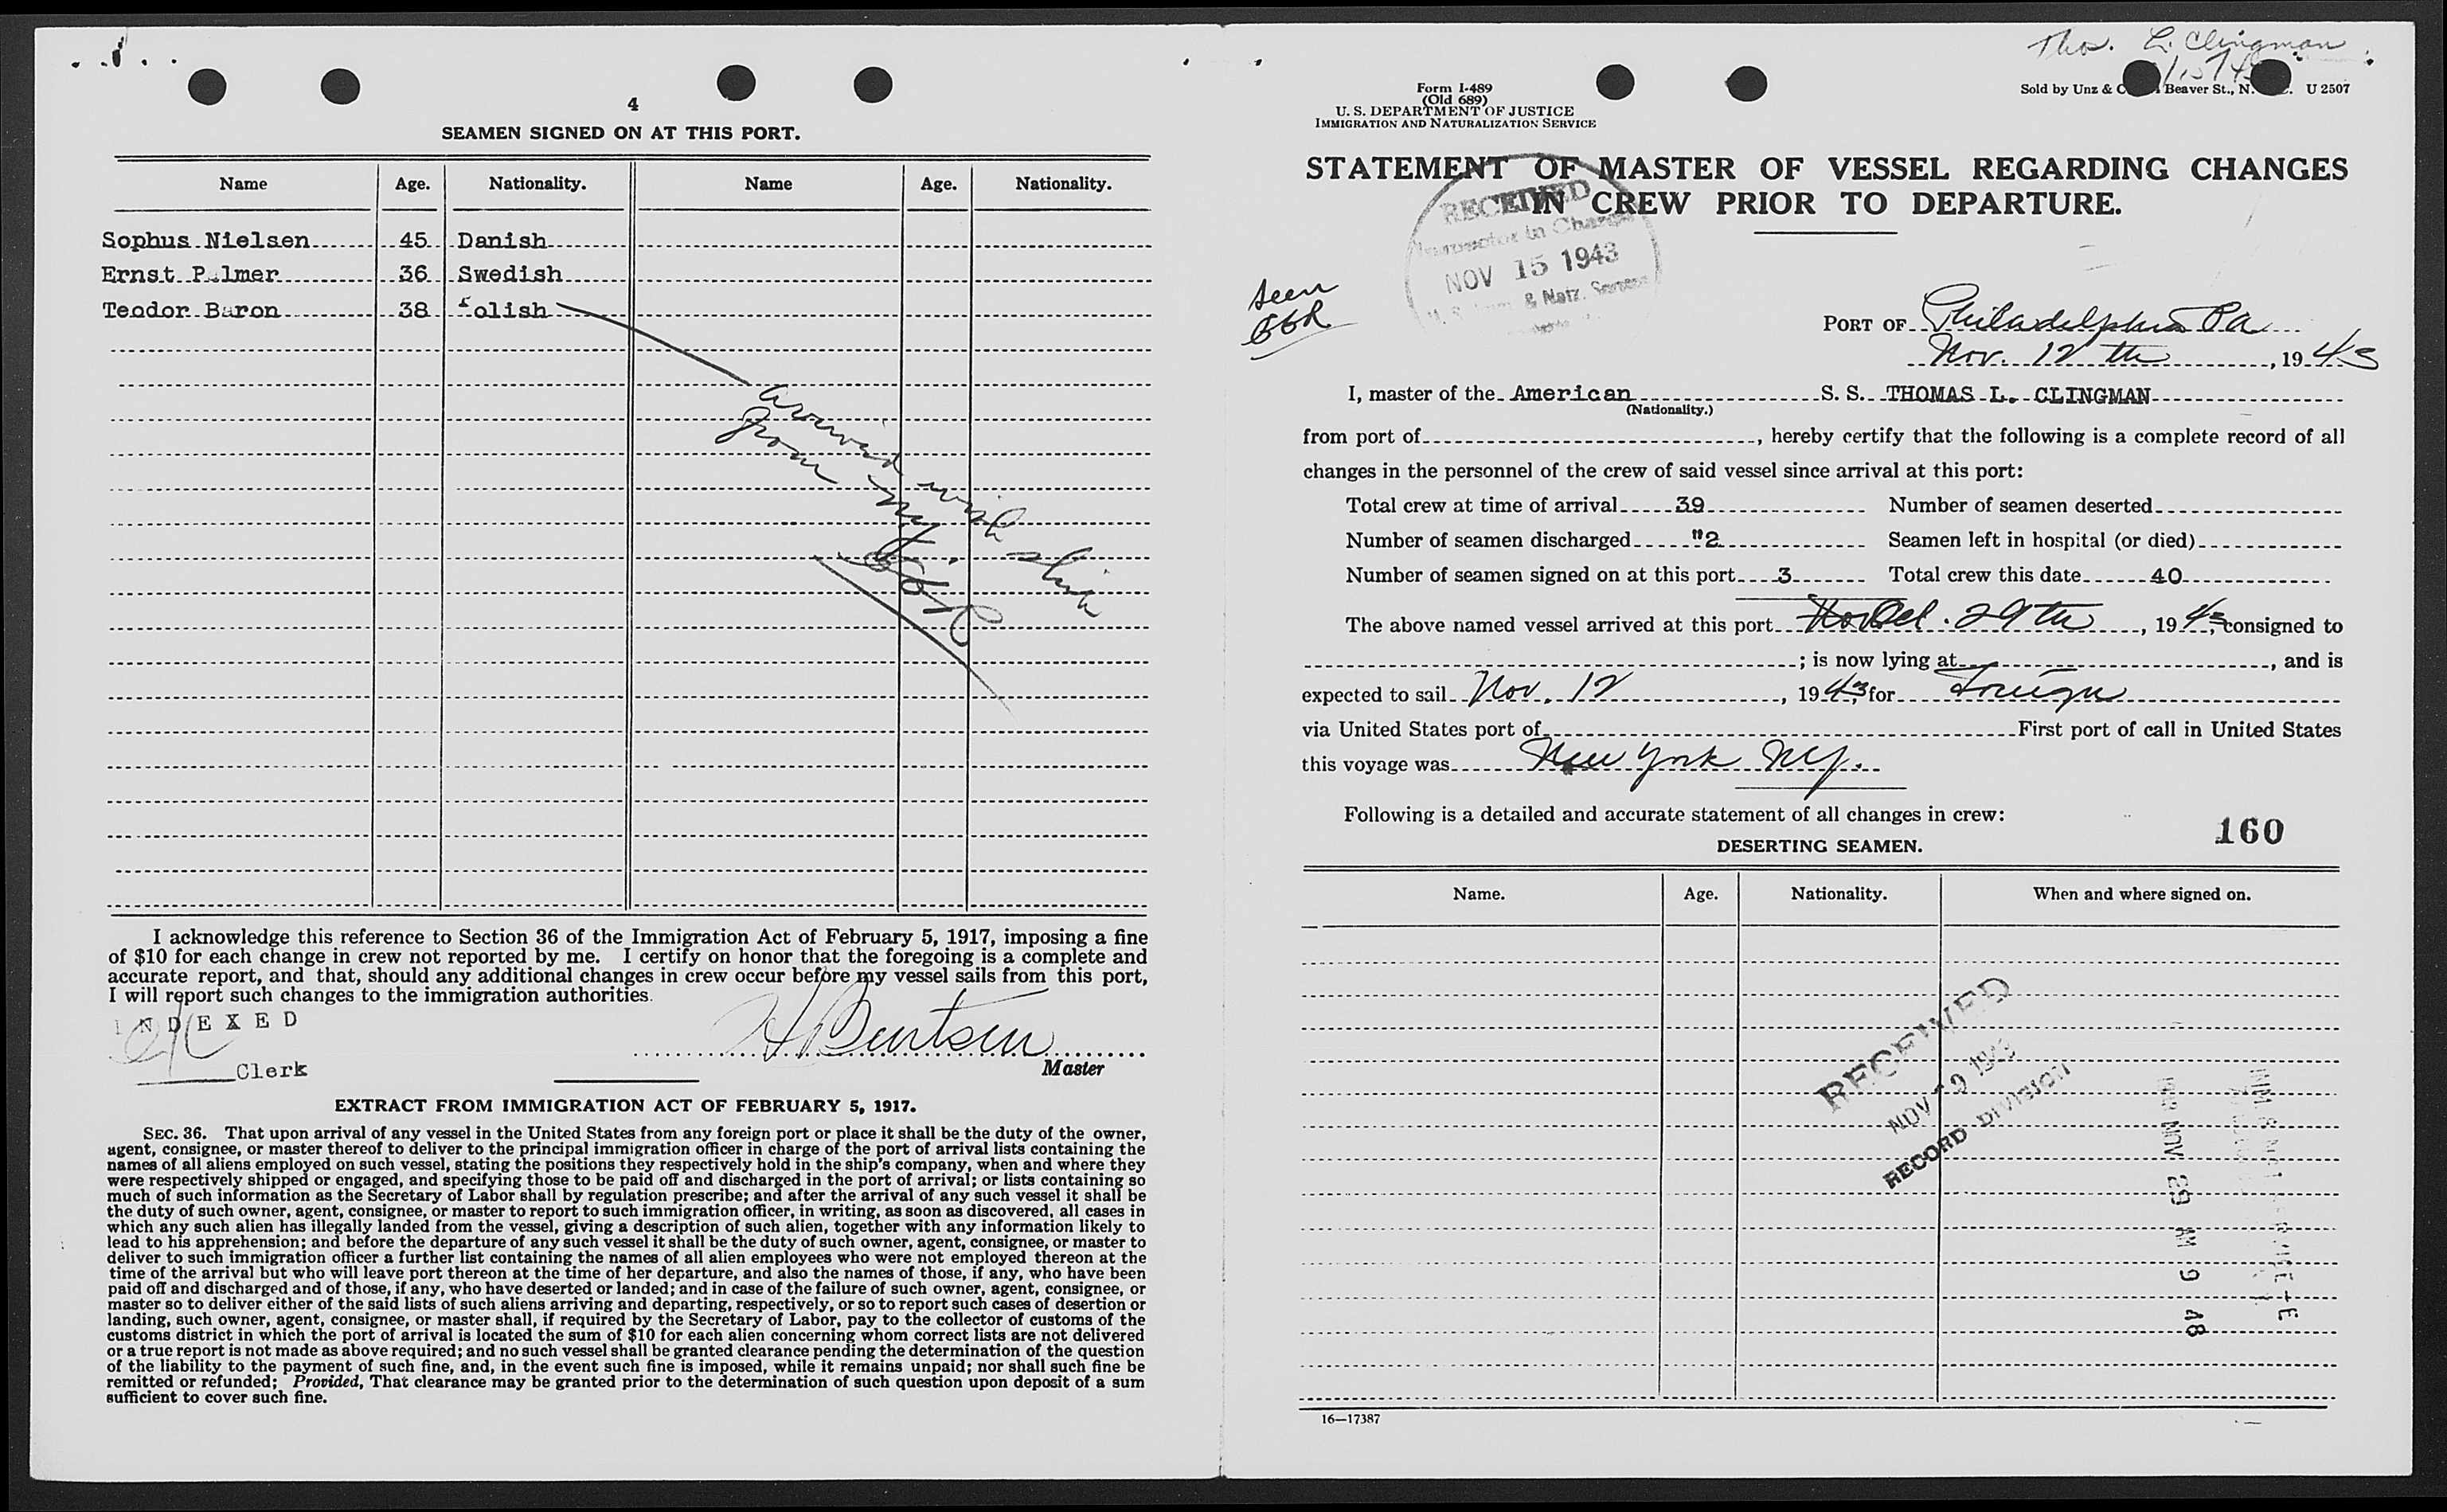 4
SEAMEN SIGNED ON AT THIS PORT.
Name Age. Nationality. Name Age. Nationality.
Sophus Nielsen 45 Danish
Ernst Palmer 36 Swedish
Teodor Baron 38 Polish
arrived with ship
from NY.
I acknowledge this reference to Section 36 of the Immigration Act of February 5, 1917, imposing a fine
of $10 for each change in crew not reported by me. I certify on honor that the foregoing is a complete and
accurate report, and that, should any additional changes in crew occur before my vessel sails from this port,
I will report such changes to the immigration authorities.
INDEXED
Clerk
H Bentsen
Master
EXTRACT FROM IMMIGRATION ACT OF FEBRUARY 5, 1917.
SEC. 36. That upon arrival of any vessel in the United States from any foreign port or place it shall be the duty of the owner,
agent, consignee, or master thereof to deliver to the principal immigration officer in charge of the port of arrival lists containing the
names of all aliens employed on such vessel, stating the positions they respectively hold in the ship's company, when and where they
were respectively shipped or engaged, and specifying those to be paid off and discharged in the port of arrival; or lists containing so
much of such information as the Secretary of Labor shall by regulation prescribe; and after the arrival of any such vessel it shall be
the duty of such owner, agent, consignee, or master to report to such immigration officer, in writing, as soon as discovered, all cases in
which any such alien has illegally landed from the vessel, giving a description of such alien, together with any information likely to
lead to his apprehension; and before the departure of any such vessel it shall be the duty of such owner, agent, consignee, or master to
deliver to such immigration officer a further list containing the names of all alien employees who were not employed thereon at the
time of the arrival but who will leave port thereon at the time of her departure, and also the names of those, if any, who have been
paid off and discharged and of those, if any, who have deserted or landed; and in case of the failure of such owner, agent, consignee, or
master so to deliver either of the said lists of such aliens arriving and departing, respectively, or so to report such cases of desertion or
landing, such owner, agent, consignee, or master shall, if required by the Secretary of Labor, pay to the collector of customs of the
customs district in which the port of arrival is located the sum of $10 for each alien concerning whom correct lists are not delivered
or a true report is not made as above required; and no such vessel shall be granted clearance pending the determination of the question
of the liability to the payment of such fine, and, in the event such fine is imposed, while it remains unpaid; nor shall such fine be
remitted or refunded; Provided, That clearance may be granted prior to the determination of such question upon deposit of a sum
sufficient to cover such fine.
Thos. L. Clingman
Form I-489
(Old 689)
U. S. DEPARTMENT OF JUSTICE
IMMIGRATION AND NATURALIZATION SERVICE
Sold by Unz & C Beaver St., N. U 2507
STATEMENT OF MASTER OF VESSEL REGARDING CHANGES
IN CREW PRIOR TO DEPARTURE.
RECEIVED
Inspector in Charge
NOV 15 1943
& Natz. Service
Seen
PORT OF Philadelphia Pa
Nov. 12 th, 1943
I, master of the American S. S. THOMAS L. CLINGMAN
(Nationality.)
from port of , hereby certify that the following is a complete record of all
changes in the personnel of the crew of said vessel since arrival at this port:
Total crew at time of arrival 39 Number of seamen deserted
Number of seamen discharged "2 Seamen left in hospital (or died)
Number of seamen signed on at this port 3 Total crew this date 40
The above named vessel arrived at this port Oct. 29th, 1943, consigned to
; is now lying at , and is
expected to sail Nov. 12, 1943, for Foreign
via United States port of First port of call in United States
this voyage was New York NY.
Following is a detailed and accurate statement of all changes in crew:
160
DESERTING SEAMEN.
Name. Age. Nationality. When and where signed on.
RECEIVED
NOV 29 1943
RECORD DIVISION
NOV 29 AM 9 48
16—17387